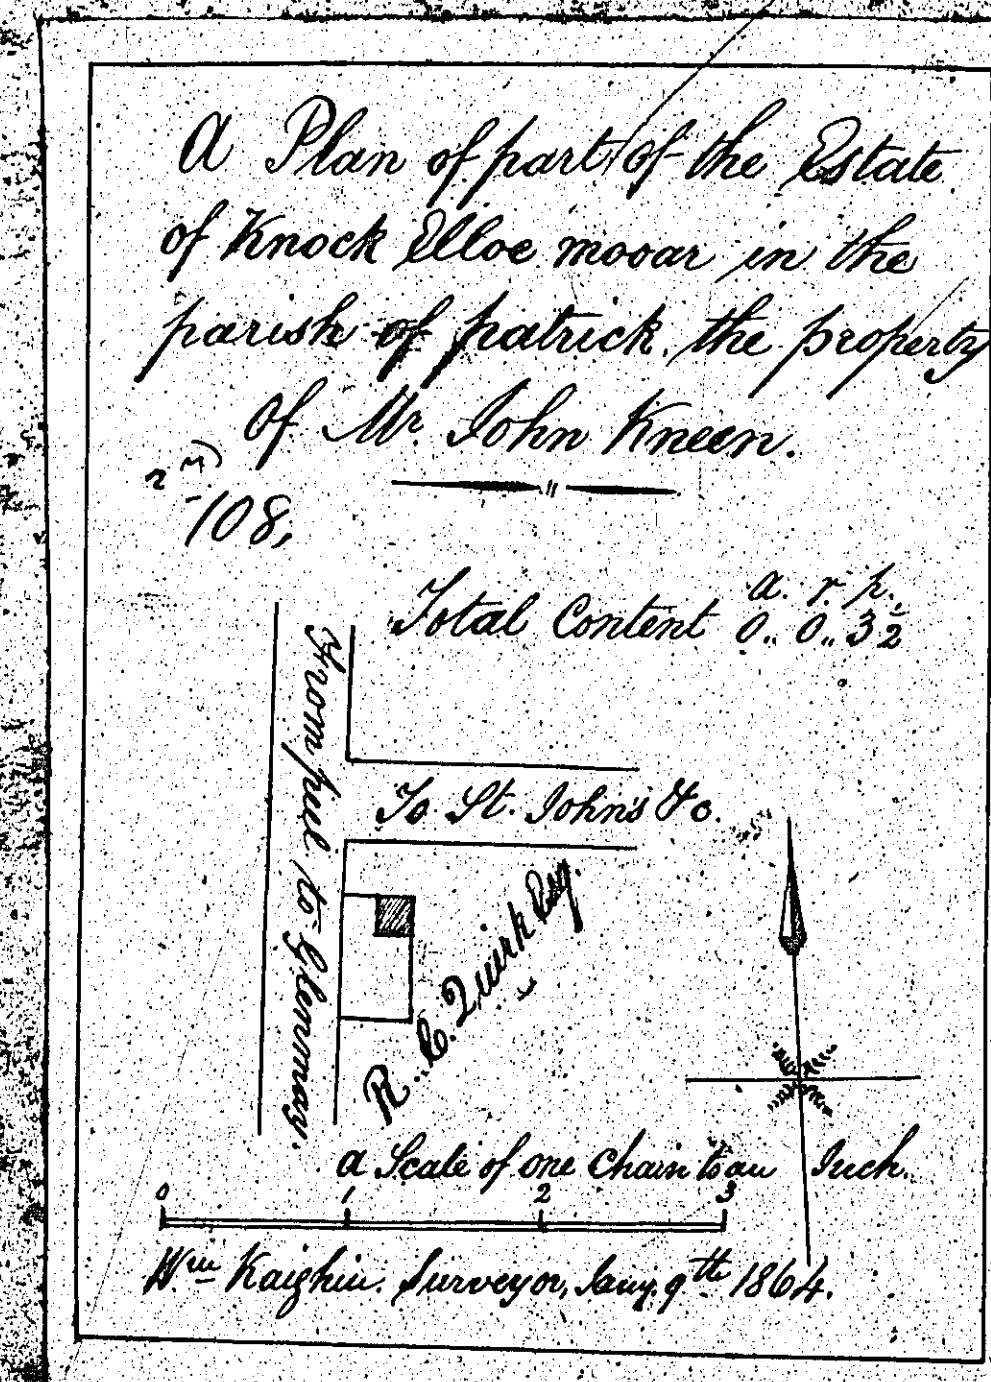 A Plan of part of the Estate
of Knock Elloe mooar in the
parish of patrick the property
of Mr. John Kneen.
108,
Total Content a. r. p.
0.. 0.. 3 1/2
From peel to Glenmay.
To St. Johns &c.
R. C. Quirk Esq.
a Scale of one Chain to an Inch.
0 1 2 3
Wm Kaighin. Surveyor, Jany. 9th 1864.